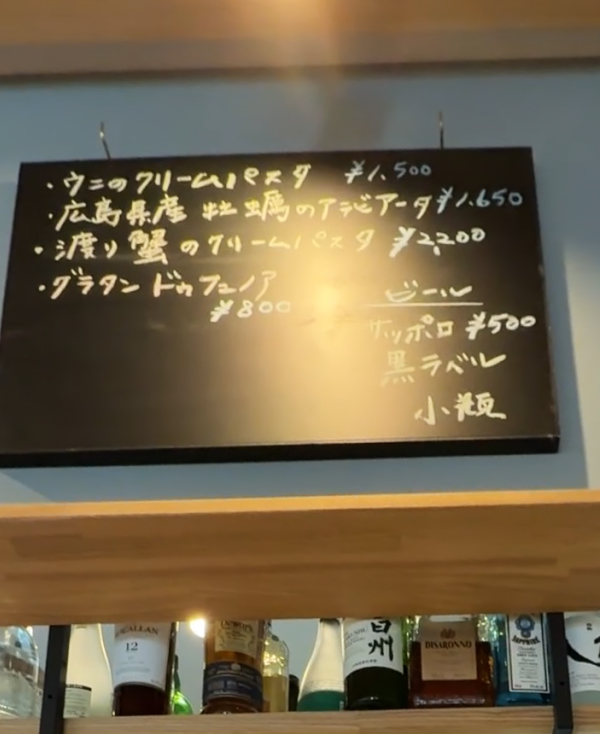 ・ウニのクリームパスタ ¥1,500
・広島県産 牡蠣のアラビアータ ¥1,650
・渡り蟹のクリームパスタ ¥2,200
・グラタン ドゥフィノア
¥800
ビール
サッポロ ¥500
黒ラベル
小瓶
MACALLAN
12
DEWAR'S
白州
DISARONNO
SAPPHIRE